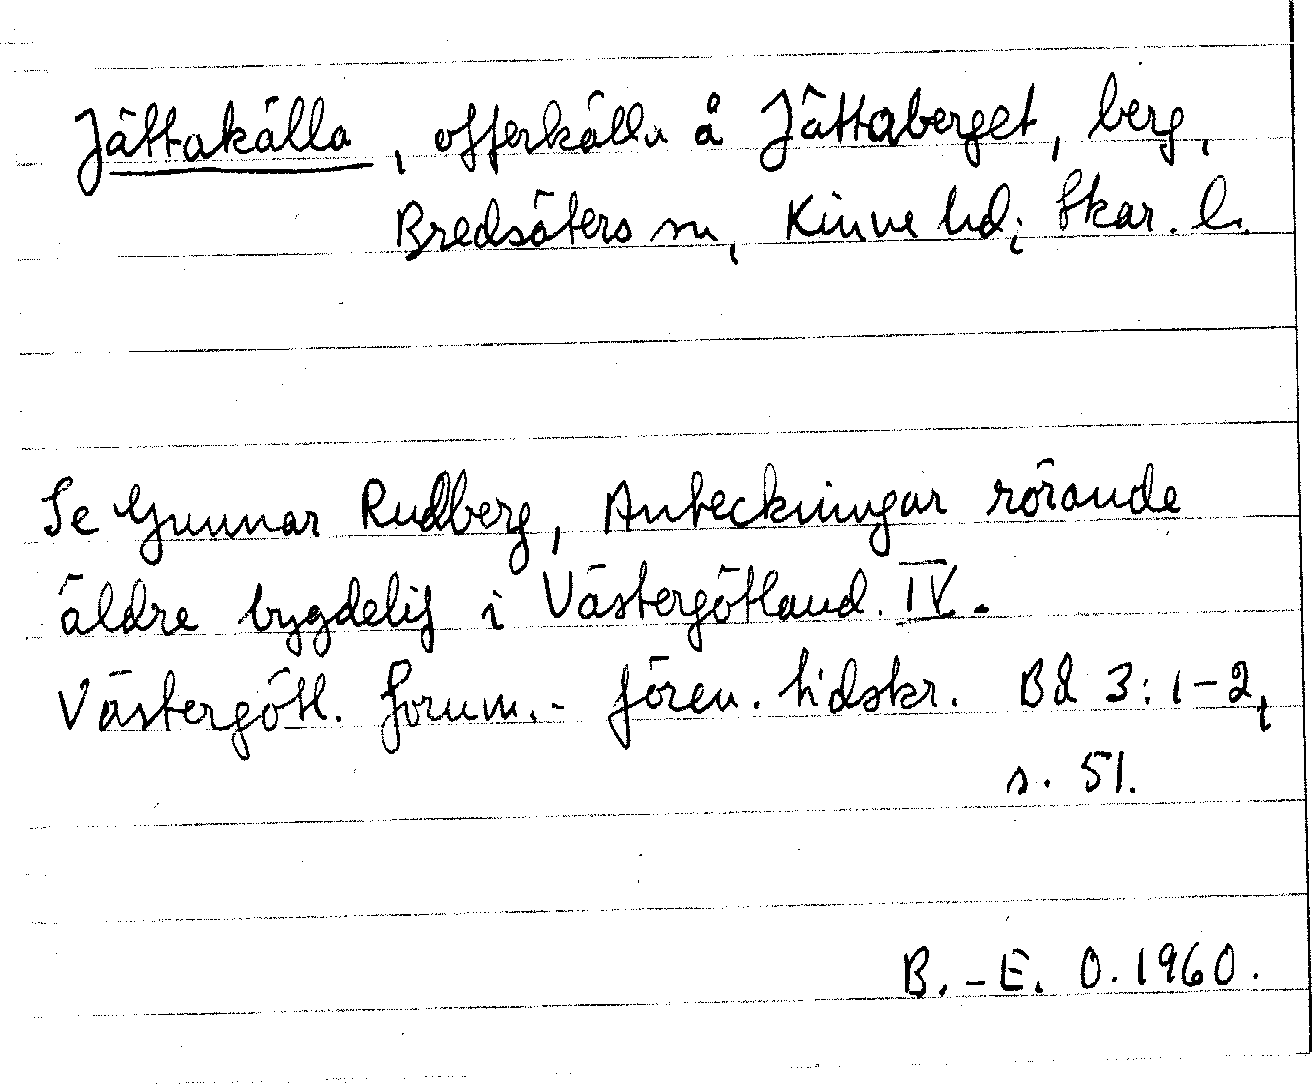 Jättakälla, offerkälla å Jättaberget, berg,
Bredsäters sn, Kinne hd, Skar. l.
Se Gunnar Rudberg, Anteckningar rörande
äldre bygdelif i Västergötland. IV.
Västergötl. fornm.- fören. tidskr. Bd 3: 1-2,
s. 51.
B.-E. O. 1960.